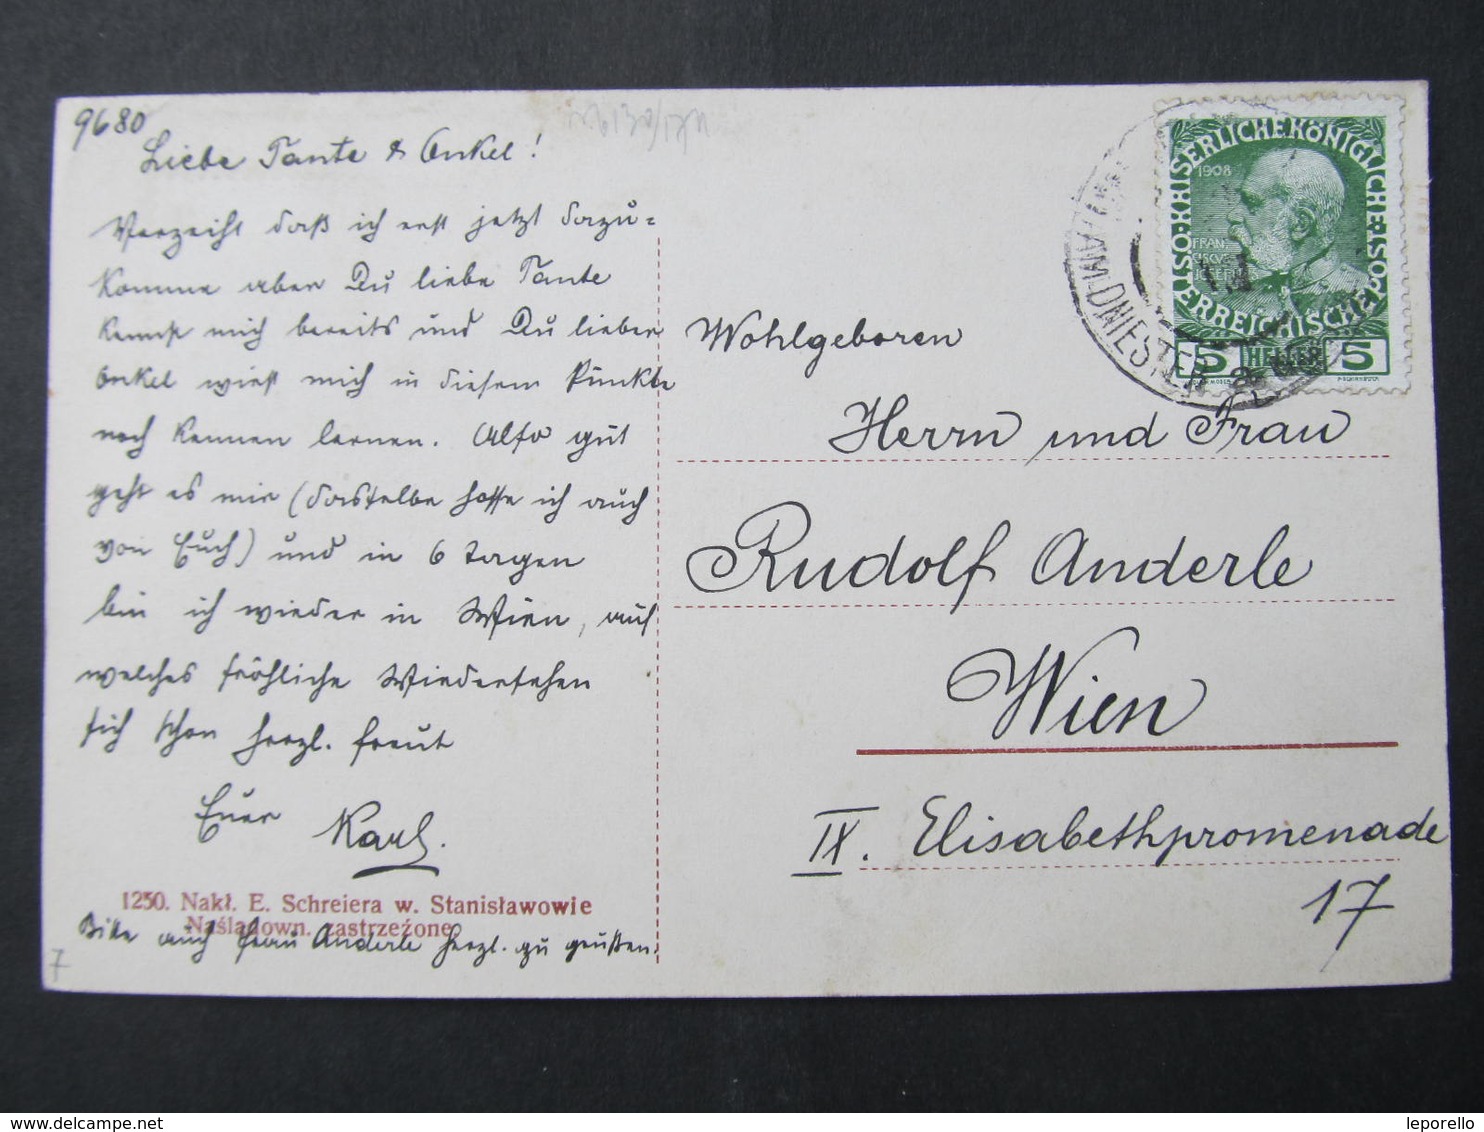 9680
Liebe Tante & Onkel!
Verzeiht daß ich erst jetzt dazu=
komme aber Du liebe Tante
kennst mich bereits und Du lieber
Onkel wirst mich in diesem Punkte
noch kennen lernen. Also gut
geht es mir (dasselbe hoffe ich auch
von Euch) und in 6 Tagen
bin ich wieder in Wien, auf
welches fröhliche Wiedersehen
sich schon herzl. freut
Euer
Karl.
1250. Nakł. E. Schreiera w. Stanisławowie
Naśladown. zastrzeżone
Bitte auch Frau Anderle herzl. zu grüßen.
7
KAISERLICHE KÖNIGLICHE ÖSTERREICHISCHE POST
1908
FRAN
CISCVS
IOSEPH I
5 HELLER 5
AM DNIESTER
Wohlgeboren
Herrn und Frau
Rudolf Anderle
Wien
IX. Elisabethpromenade
17
leporello